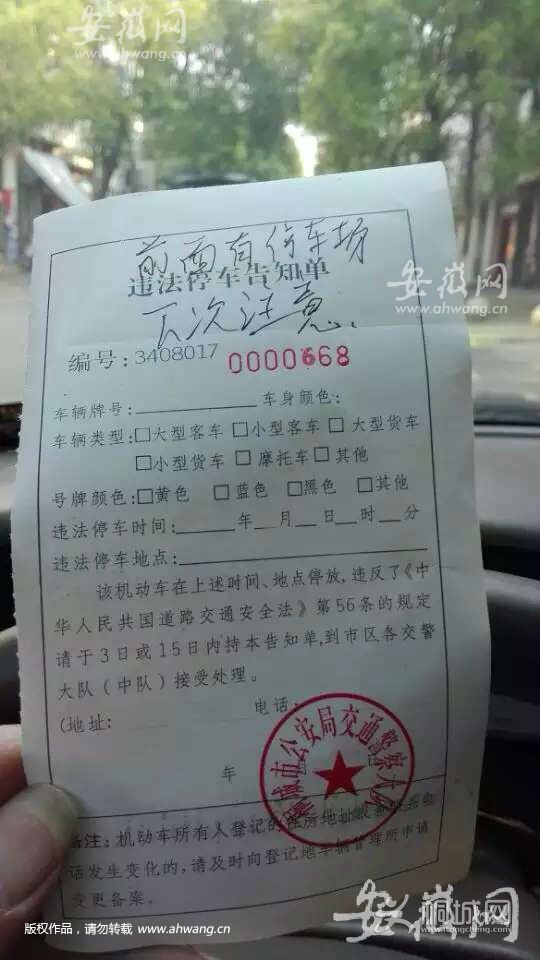 安徽网
www.ahwang.cn
前面有停车场
违法停车告知单
下次注意、
安徽网
www.ahwang.cn
编号:3408017 0000668
车辆牌号: 车身颜色:
车辆类型:□大型客车 □小型客车 □ 大型货车
□小型货车 □ 摩托车 □ 其他
号牌颜色:□黄色 □ 蓝色 □黑色 □其他
违法停车时间: 年 月 日 时 分
违法停车地点:
该机动车在上述时间、地点停放,违反了《中
华人民共国道路交通安全法》第56条的规定
请于3日或15日内持本告知单,到市区各交警
大队(中队)接受处理。
(地址: 电话:
年
市公安局交通警察大队
备注:机动车所有人登记的住所地址
话发生变化的,请及时向登记地车辆管理所申请
变更备案。
版权作品,请勿转载 www.ahwang.cn
安徽网
桐城网
www.tongcheng.com